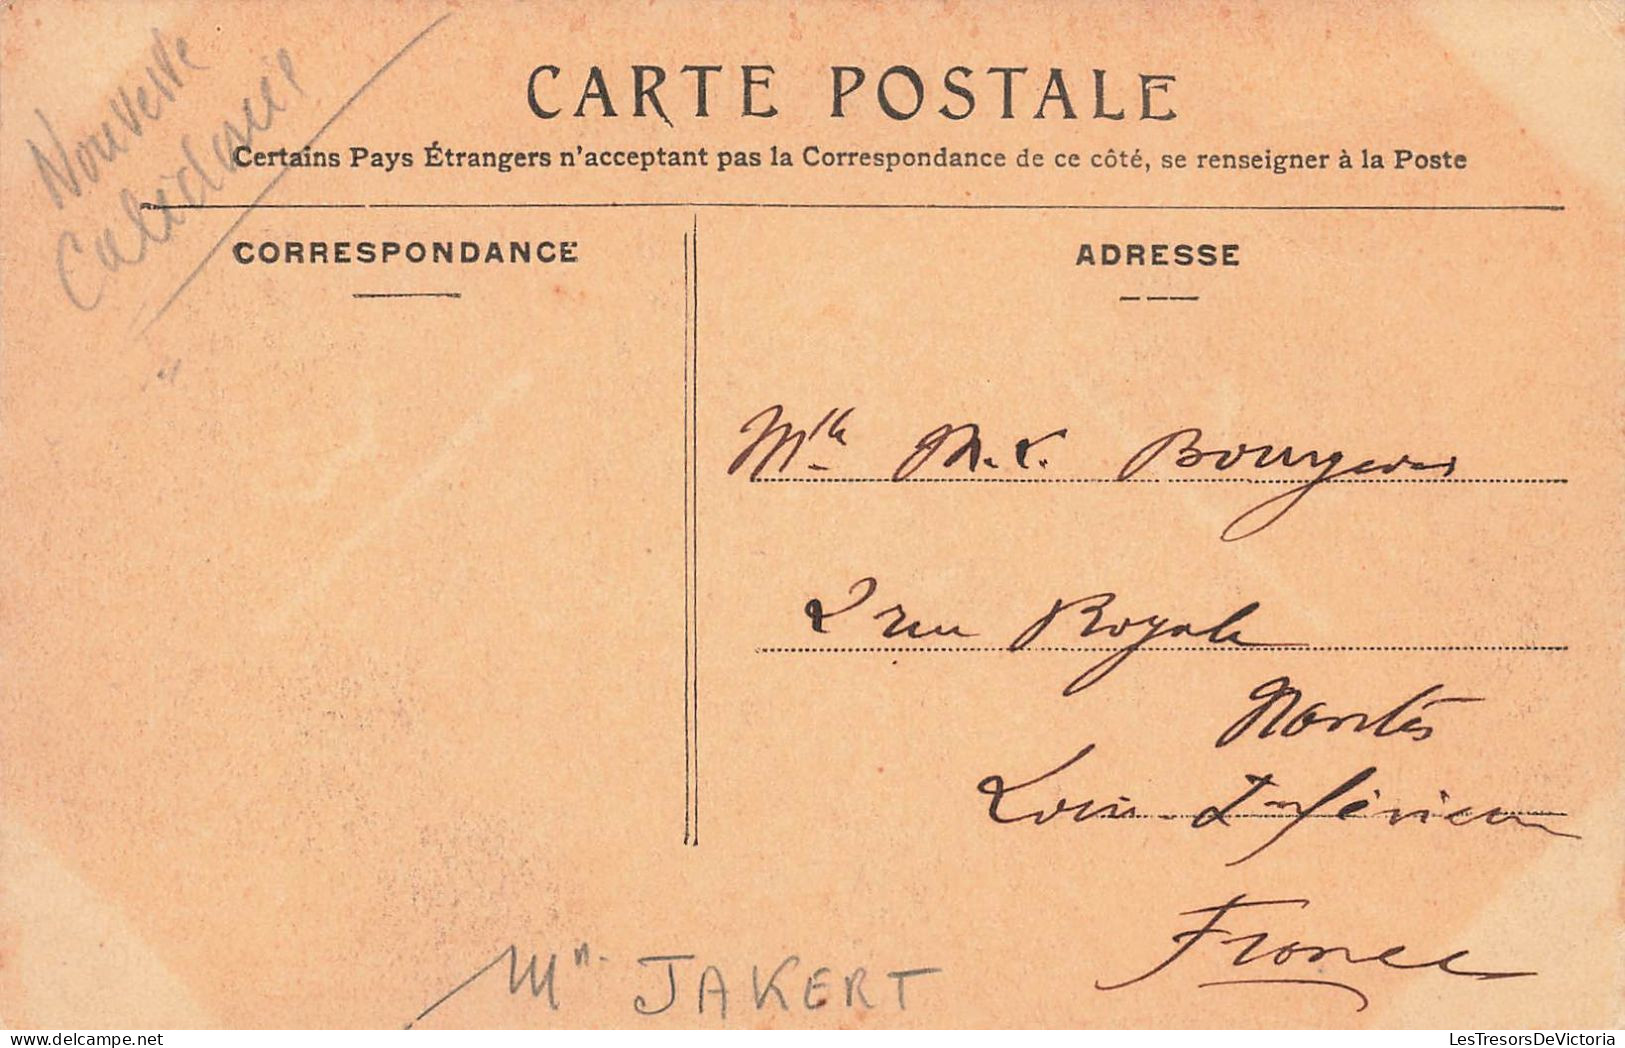 Nouvelle
Calédonie
CARTE POSTALE
Certains Pays Étrangers n'acceptant pas la Correspondance de ce côté, se renseigner à la Poste
CORRESPONDANCE
ADRESSE
Mlle M. L. Bourgeois
2 rue Royale
Nantes
Loire-Inférieure
France
Mn JAKERT
LesTresorsDeVictoria